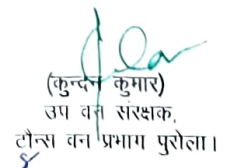 (कुन्दन कुमार)
उप वन संरक्षक,
टौन्स वन प्रभाग पुरोला।